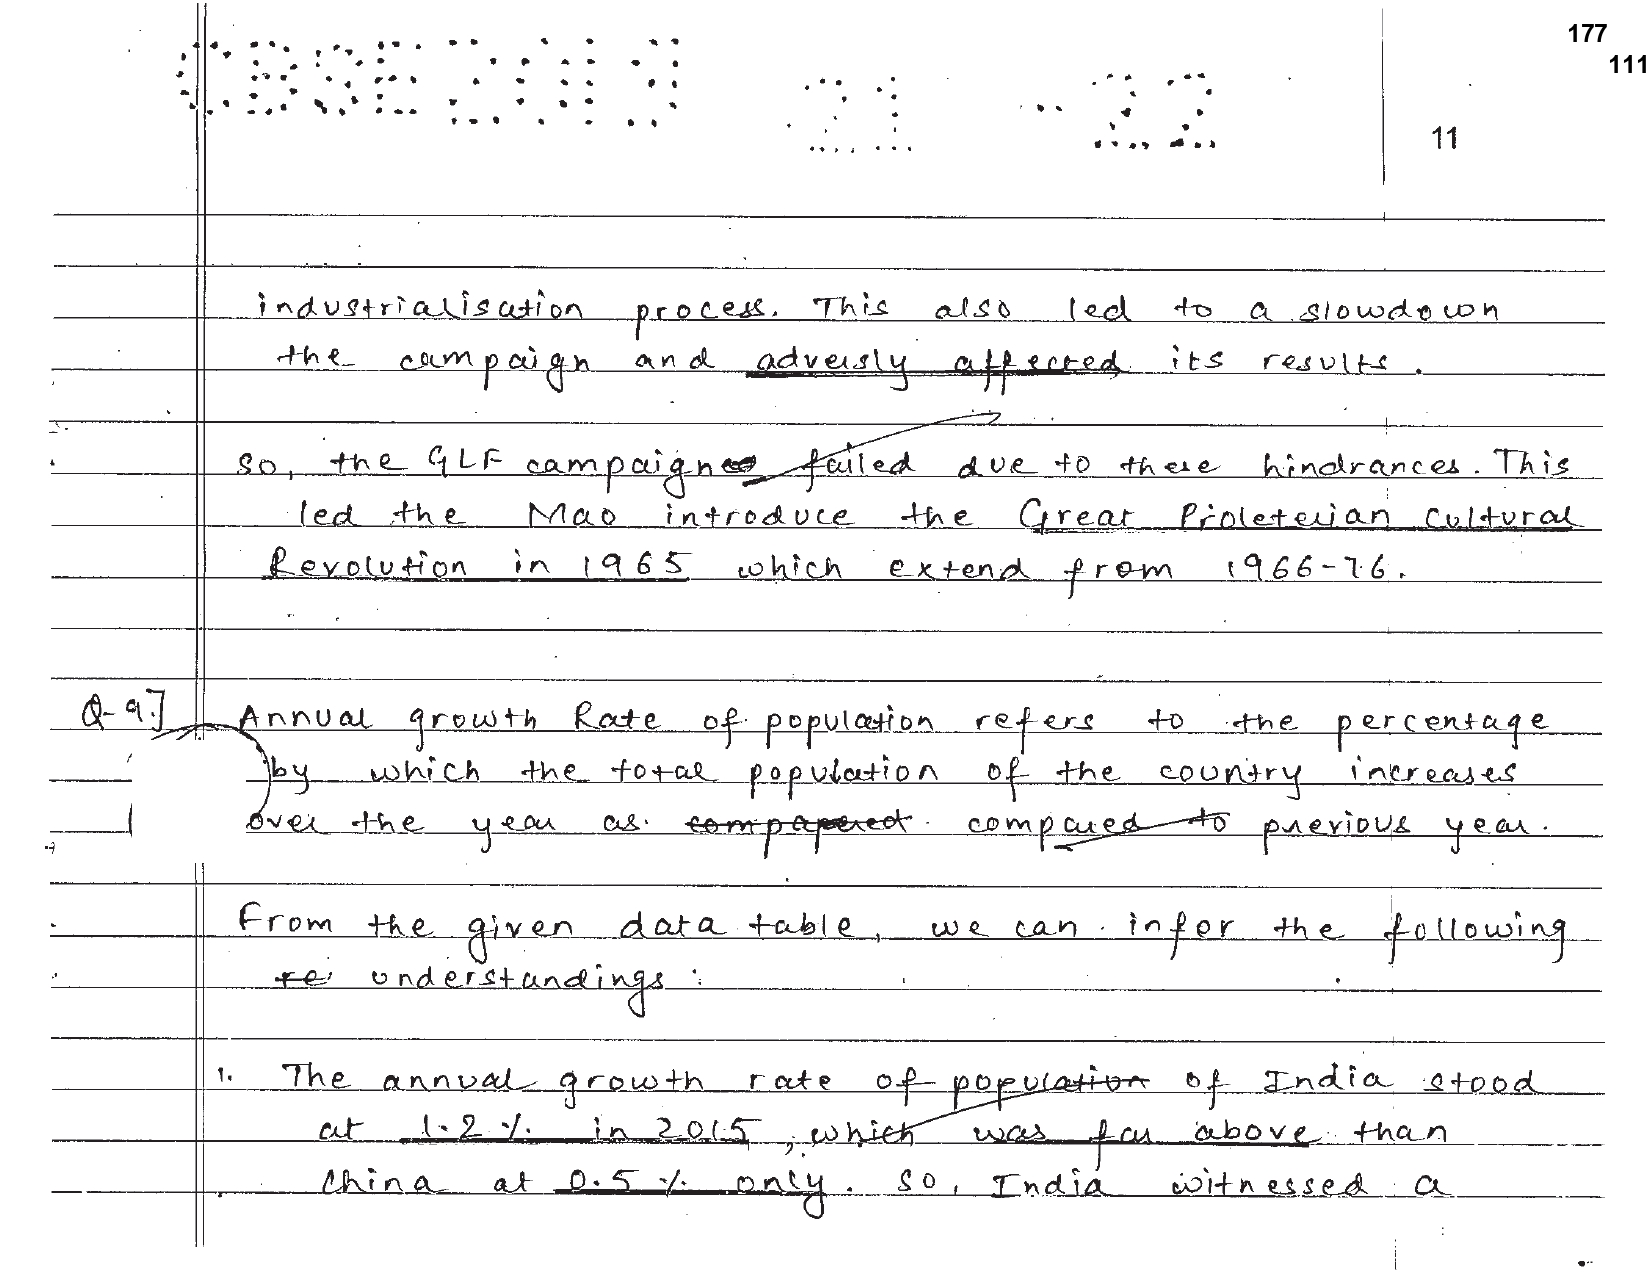 177
111
CBSE 21 -22
11
industrialisation process. This also led to a slowdown
the campaign and adversly affected its results.
So, the GLF campaign failed due to these hindrances. This
led the Mao introduce the Great Proleterian Cultural
Revolution in 1965 which extend from 1966-76.
Q-9.] Annual growth Rate of population refers to the percentage
by which the total population of the country increases
over the year as compapered compared to previous year.
From the given data table, we can infer the following
re understandings:
1. The annual growth rate of population of India stood
at 1.2% in 2015, which was far above than
China at 0.5% only. So, India witnessed a